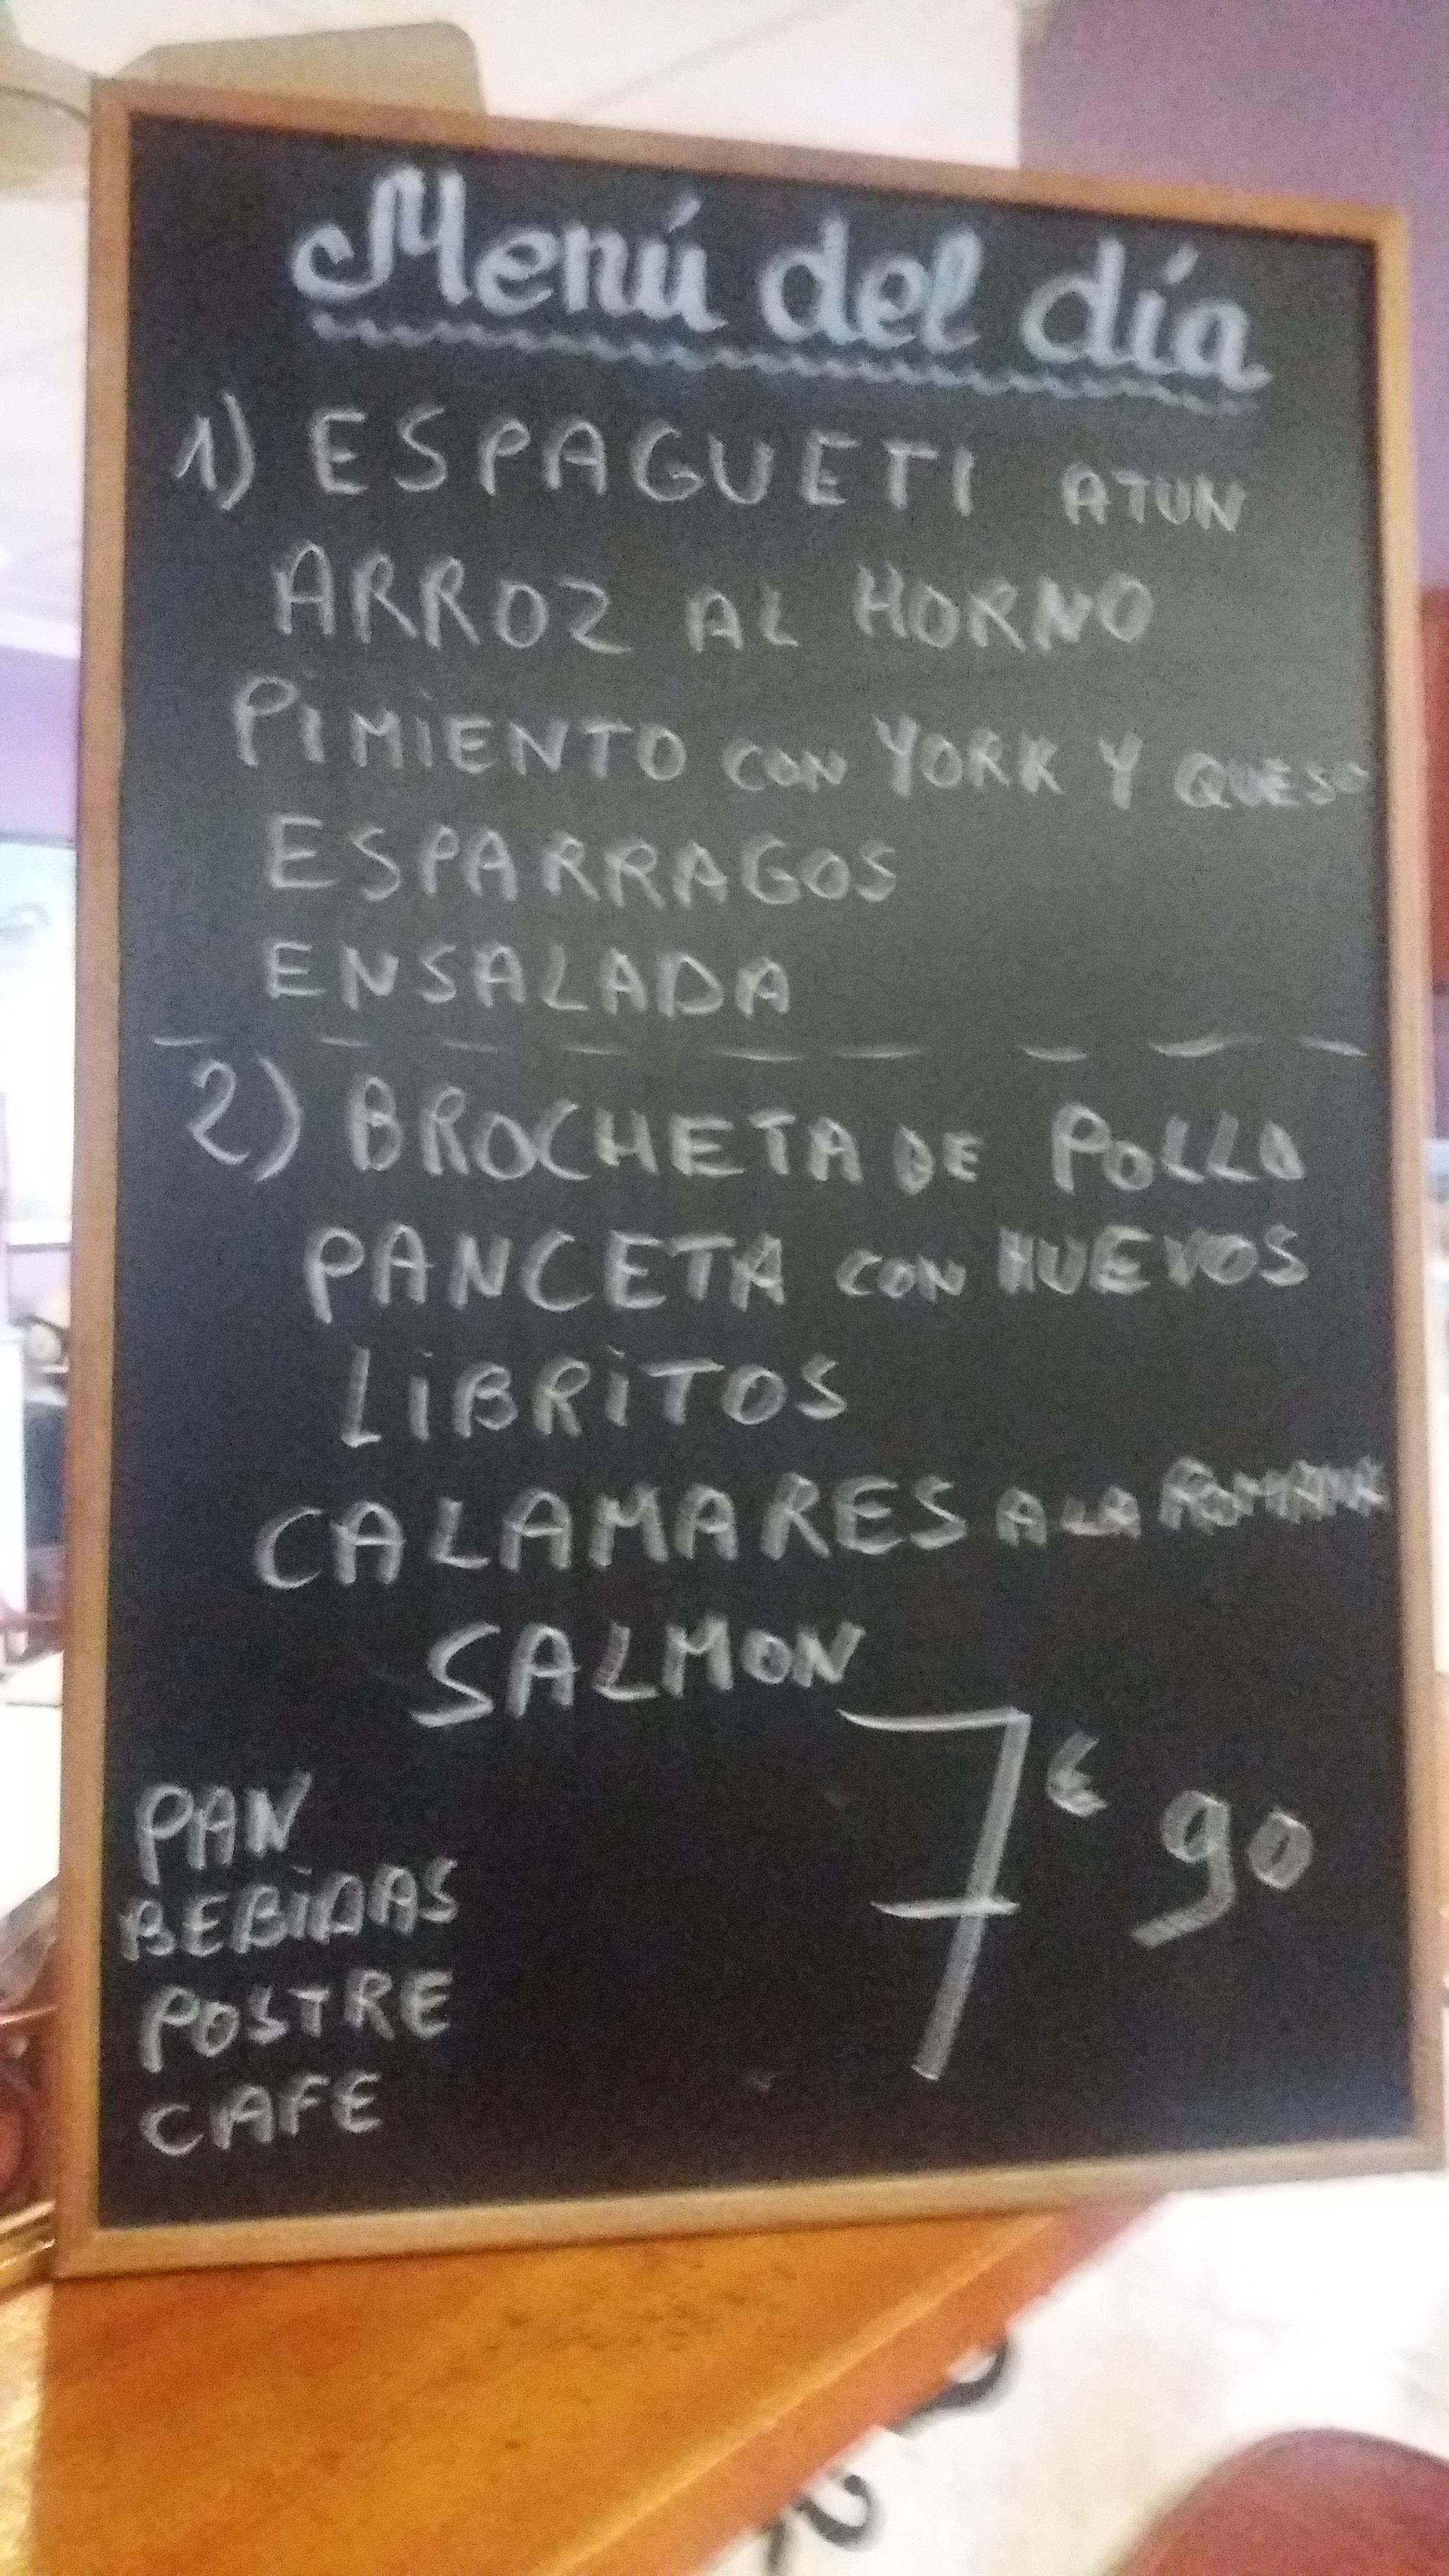 Menú del día
1) ESPAGUETI ATUN
ARROZ AL HORNO
PIMIENTO CON YORK Y QUESO
ESPARRAGOS
ENSALADA
2) BROCHETA DE POLLO
PANCETA CON HUEVOS
LIBRITOS
CALAMARES A LA ROMANA
SALMON
7€90
PAN
BEBIDAS
POSTRE
CAFE